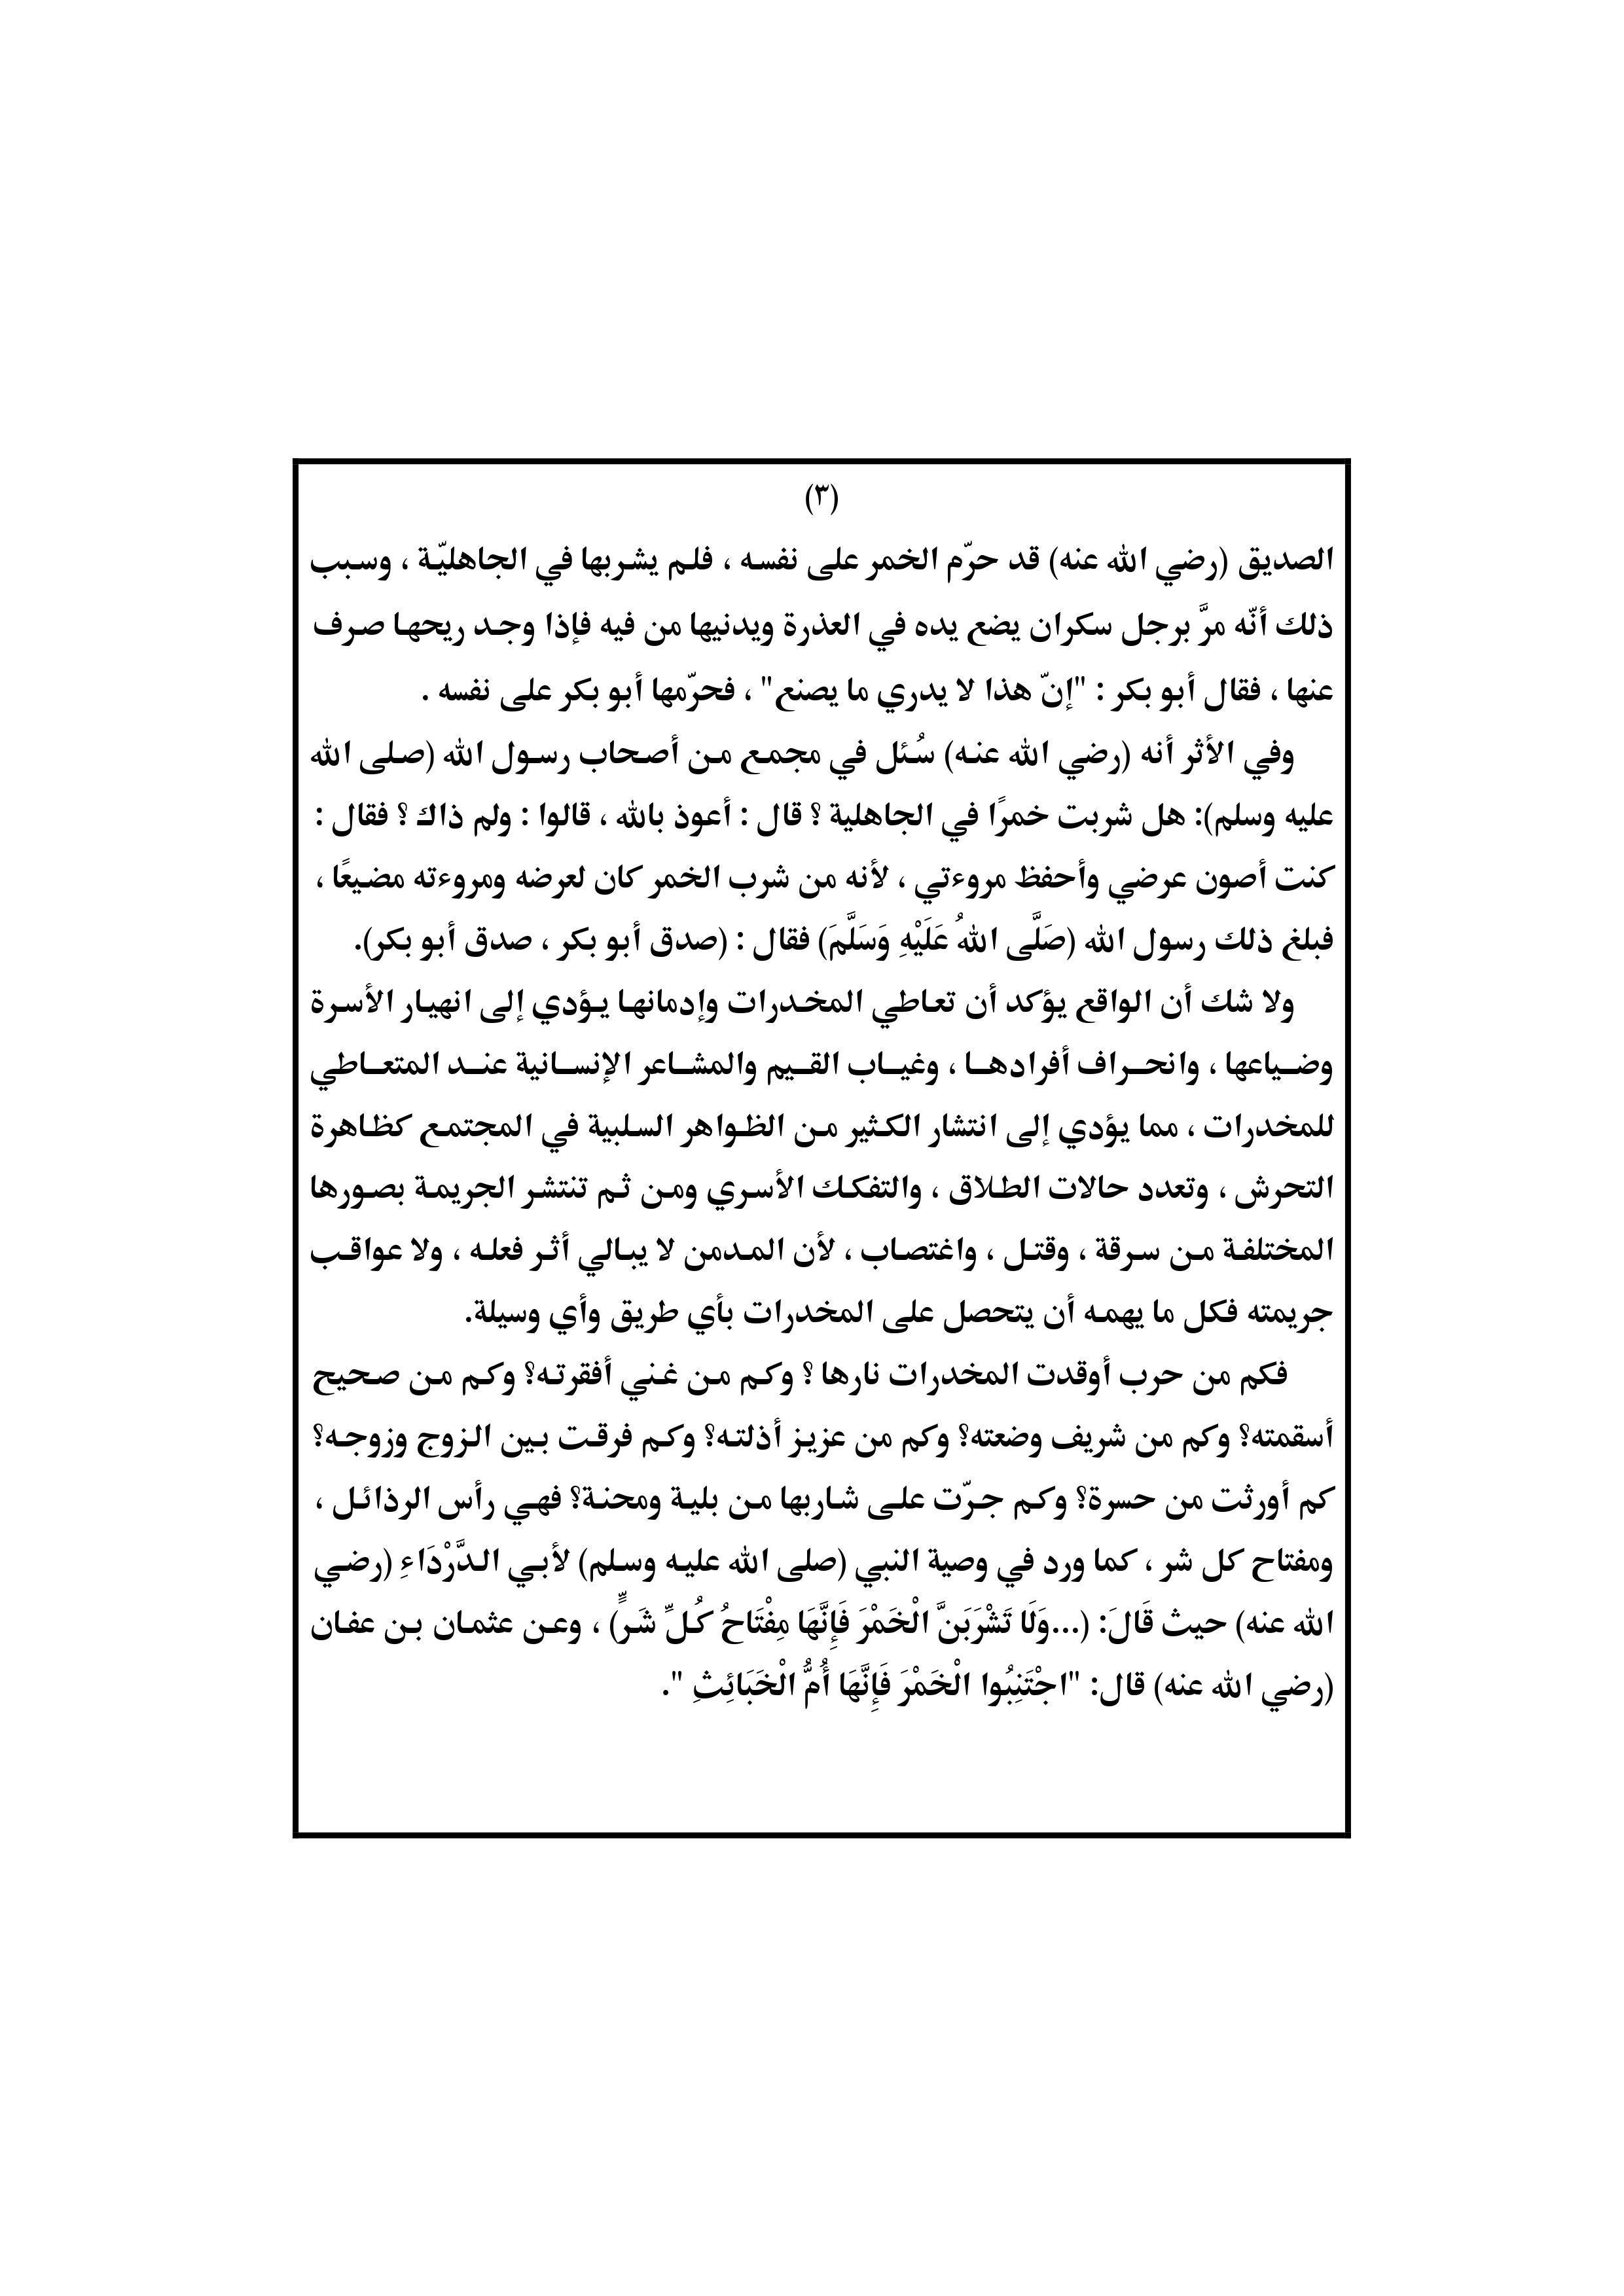 (٣)
الصديق (رضي الله عنه) قد حرّم الخمر على نفسه ، فلم يشربها في الجاهليّة ، وسبب
ذلك أنّه مرَّ برجل سكران يضع يده في العذرة ويدنيها من فيه فإذا وجد ريحها صرف
عنها ، فقال أبو بكر : "إنّ هذا لا يدري ما يصنع" ، فحرّمها أبو بكر على نفسه .
وفي الأثر أنه (رضي الله عنه) سُئل في مجمع من أصحاب رسول الله (صلى الله
عليه وسلم): هل شربت خمرًا في الجاهلية ؟ قال : أعوذ بالله ، قالوا : ولم ذاك ؟ فقال :
كنت أصون عرضي وأحفظ مروءتي ، لأنه من شرب الخمر كان لعرضه ومروءته مضيعًا ،
فبلغ ذلك رسول الله (صَلَّى اللهُ عَلَيْهِ وَسَلَّمَ) فقال : (صدق أبو بكر ، صدق أبو بكر).
ولا شك أن الواقع يؤكد أن تعاطي المخدرات وإدمانها يؤدي إلى انهيار الأسرة
وضياعها ، وانحراف أفرادها ، وغياب القيم والمشاعر الإنسانية عند المتعاطي
للمخدرات ، مما يؤدي إلى انتشار الكثير من الظواهر السلبية في المجتمع كظاهرة
التحرش ، وتعدد حالات الطلاق ، والتفكك الأسري ومن ثم تنتشر الجريمة بصورها
المختلفة من سرقة ، وقتل ، واغتصاب ، لأن المدمن لا يبالي أثر فعله ، ولا عواقب
جريمته فكل ما يهمه أن يتحصل على المخدرات بأي طريق وأي وسيلة.
فكم من حرب أوقدت المخدرات نارها ؟ وكم من غني أفقرته؟ وكم من صحيح
أسقمته؟ وكم من شريف وضعته؟ وكم من عزيز أذلته؟ وكم فرقت بين الزوج وزوجه؟
كم أورثت من حسرة؟ وكم جرّت على شاربها من بلية ومحنة؟ فهي رأس الرذائل ،
ومفتاح كل شر ، كما ورد في وصية النبي (صلى الله عليه وسلم) لأبي الدَّرْدَاءِ (رضي
الله عنه) حيث قَالَ: (...وَلَا تَشْرَبَنَّ الْخَمْرَ فَإِنَّهَا مِفْتَاحُ كُلِّ شَرٍّ) ، وعن عثمان بن عفان
(رضي الله عنه) قال: "اجْتَنِبُوا الْخَمْرَ فَإِنَّهَا أُمُّ الْخَبَائِثِ ".